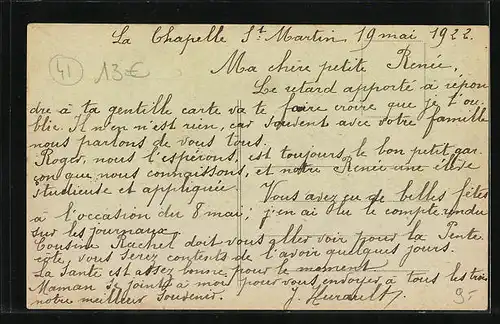 La Chapelle St Martin 19 mai 1922.
41 13€
Ma chère petite Renée,
Le retard apporté à répon
dre à ta gentille carte va te faire croire que je t'ou
blie. Il n'en n'est rien, car souvent avec votre famille
nous parlons de vous tous.
Roger, nous l'espérons, est toujours le bon petit gar
çon que nous connaissons, et notre Renée une élève
studieuse et appliquée.
Vous avez eu de belles fêtes
à l'occasion du 8 mai; j'en ai lu le compte rendu
sur les journaux.
Cousine Rachel doit vous aller voir pour la Pente
côte, vous serez contents de l'avoir quelques jours.
La Santé est assez bonne, pour le moment
Maman se joint à moi pour vous envoyer, à tous les trois
notre meilleur Souvenir.
J. Hurault
9.-